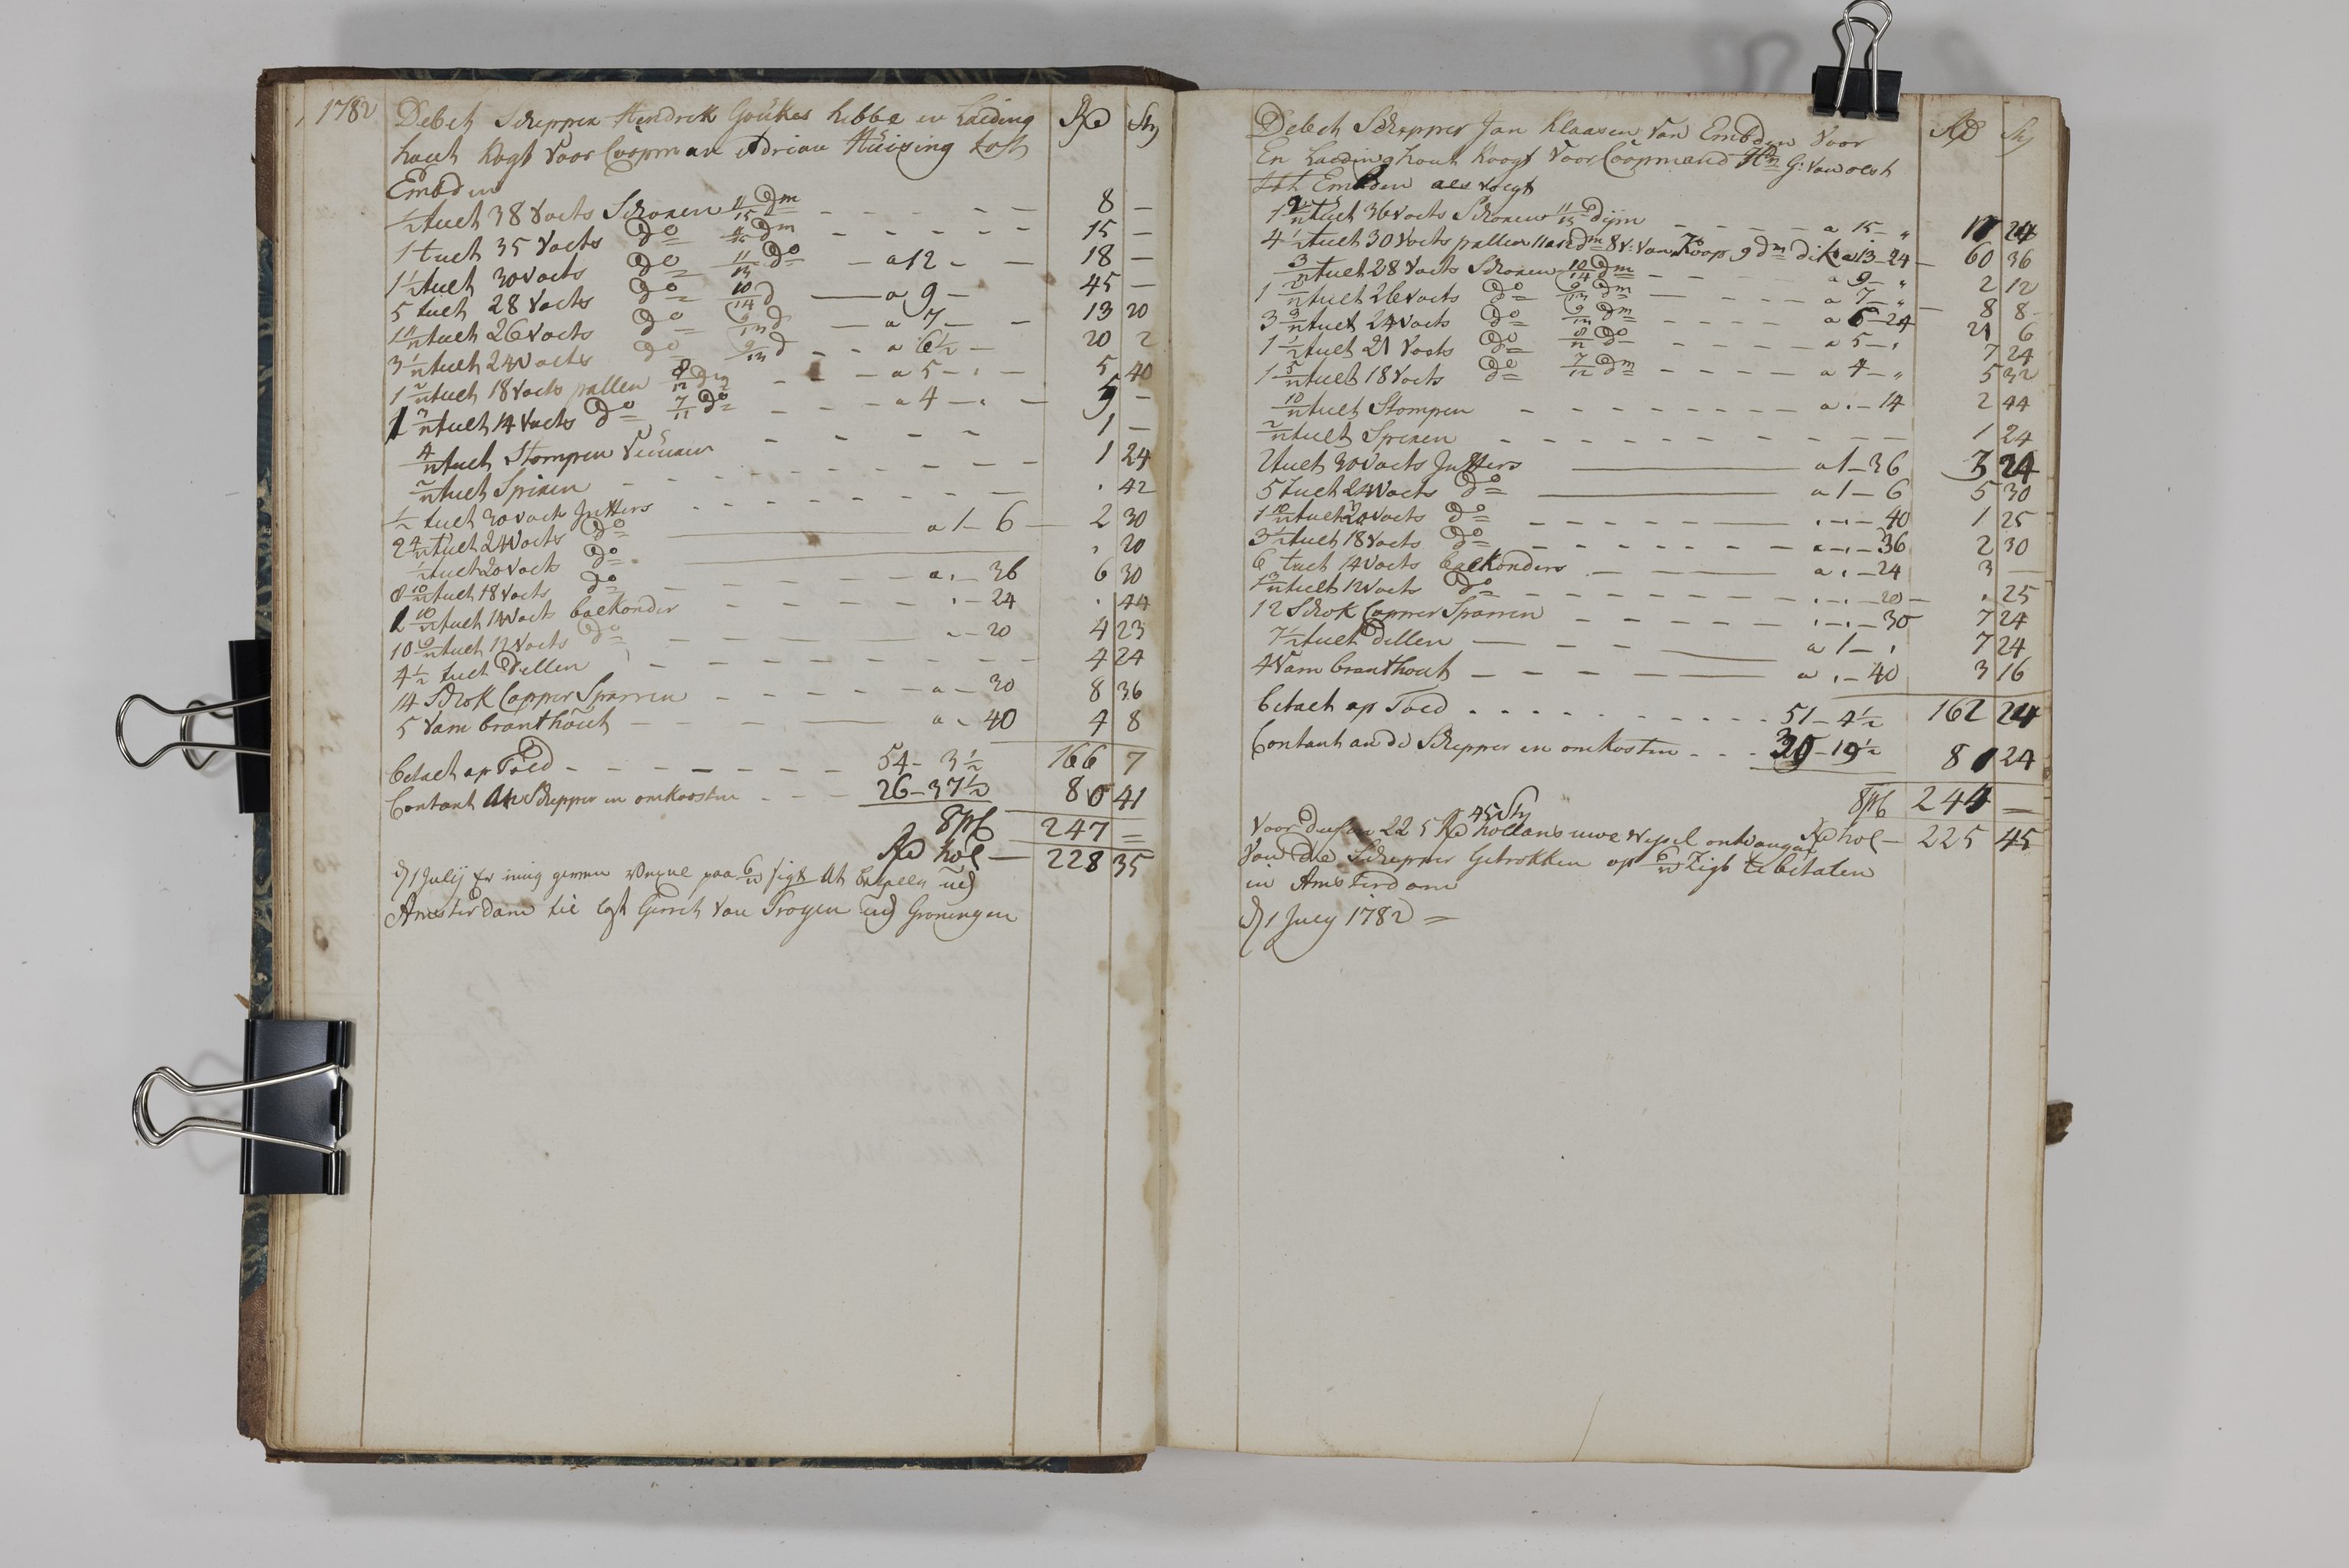 1782 Debet Schepper Hendrik Goukes Hebbe en Laeding Rd St
hout Kogt Voor Coopman Adrian Huising tot
Embden
1/2 tuelt 38 Voets Schoren 11/15 Dm - - - - - 8 —
1 tuelt 35 Voets Do Dm - - - - - 15 —
1 1/2 tuelt 30 Voets Do 11/13 Do — a 12 - — 18 —
5 tuelt 28 Voets Do 10/14 d — a 9 — 45 —
tuelt 26 Voets Do 9/13 d — a 7 — - 13 20
3 tuelt 24 Voets Do 9/13 d - - a 6 1/2 — 20 2
1 tuelt 18 Voets pallen 8/12 Dm - - - a 5 - - — 5 40
1 tuelt 14 Voets Do 7/11 Do - - - a 4 - - — 5 —
4/12 tuelt Stompen - - - - 1 —
2/12 tuelt Spiren - - - - - - - 1 24
1/2 tuelt 30 Voets Jutters - - - - - - . 42
2 4/12 tuelt 24 Voets Do — a 1 - 6 — 2 30
1/2 tuelt 20 Voets Do — . 20
8 10/12 tuelt 18 Voets Do - - - - - a . - 36 6 30
1 10/12 tuelt 14 Voets balkonder - - - - - . - 24 . 44
10 tuelt 12 Voets Do - - — . - 20 4 23
4 1/2 tuelt Dellen - - - - - - - - 4 24
14 Schok Copper Sparren - - - - - a - 30 8 36
5 Vam branthout - - - — a - 40 4 8
betaelt op Toed - - - - - - - 54 - 3 1/2 166 7
Contant An Schepper en omkosten - - - 26 - 37 1/2 80 41
247 =
Rd hol — 228 35
d 1 Julij
Amsterdam Gerrit Van Troyen Groningen
Debet Schepper Jan Klaasen Van Embden Voor Rd St
En Laeding hout Koogt Voor Coopmand G: Van olst
tot Embden als volgt
1 2/12 tuelt 36 Voets Schoren 11/13 Dijm - - - - a 15 - „ 17 24
4 1/2 tuelt 30 Voets pallen Dm 8 V: Van Koop 9 dm dik a 13 - 24 — 60 36
3/12 tuelt 28 Voets Schoren 10/14 Dm - - - a 9 - „ 2 12
1 tuelt 26 Voets Do 9/13 Dm — - - - a 7 - „ — 8 8
3 3/12 tuelt 24 Voets Do 9/13 Dm - - - - a 6 - 24 21 6
1 1/2 tuelt 21 Voets Do 8/12 Do - - - - - a 5 - . 7 24
1 5/12 tuelt 18 Voets Do 7/12 Dm - - - - a 4 - „ 5 32
10/12 tuelt Stompen - - - - - - - - a . - 14 2 44
2/12 tuelt Spiren - - - - - - - - - - 1 24
2 tuelt 30 Voets Jutters — a 1 - 36 3 24
5 tuelt 24 Voets Do — a 1 - 6 5 30
1 10/12 tuelt 20 Voets Do - - - - - - - . . - 40 1 25
3 1/2 tuelt 18 Voets Do - - - - - - - a . - 36 2 30
6 tuelt 14 Voets balkonders — - - — a . - 24 3 —
1 3/12 tuelt 12 Voets Do - - - - - - - . . - 20 - . 25
12 Schok Copper Sparren - - - - - . . - 30 7 24
7 1/2 tuelt Dellen — - - — a 1 - . 7 24
4 Vam branthout - - - — a . - 40 3 16
betaelt op Toed - - - - - - - - - - 51 - 4 1/2 162 24
Contant an de Schepper en omkosten - - - 30 - 19 1/2 81 24
244 =
Voor deesen 225 Rd 45 St hollans uwe Wessel ontvangen Rd hol — 225 45
Van Die Schepper Getrokken op Zigt te betalen
in Amsterdam
d 1 July 1782 =